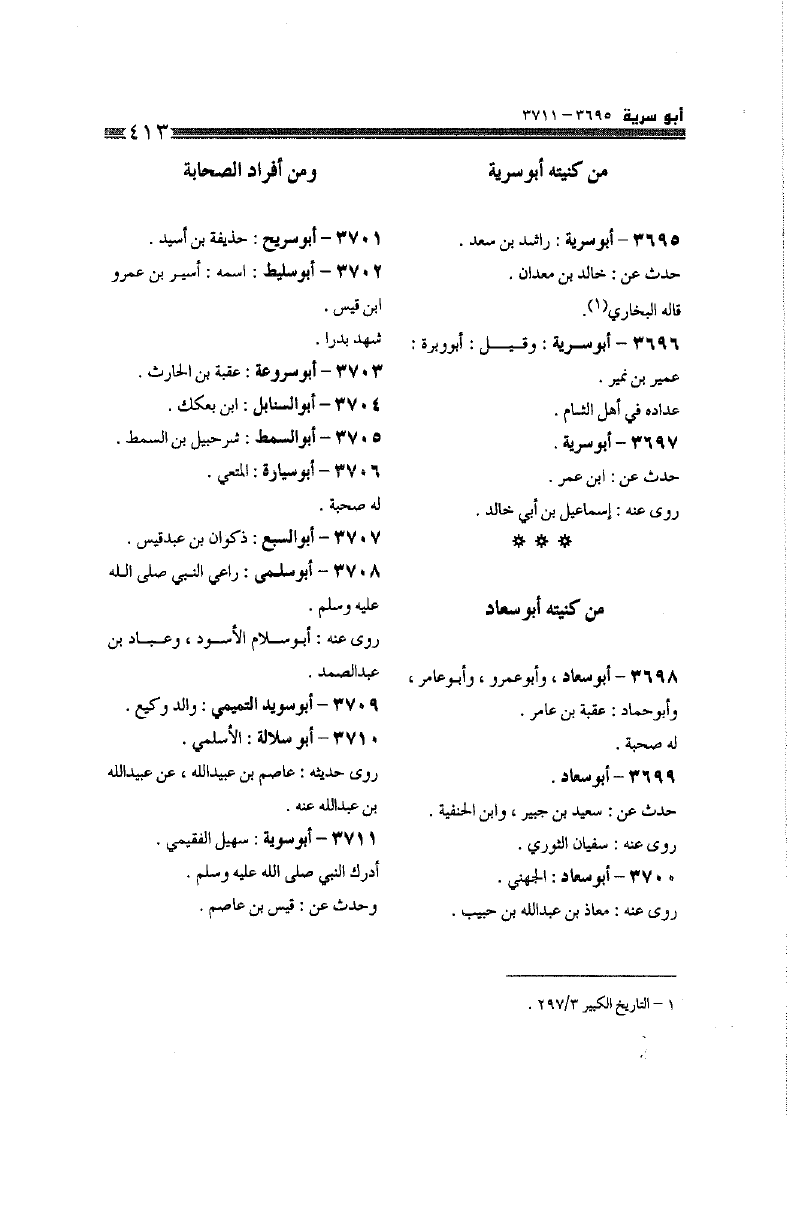 أبو سرية ٣٦٩٥ – ٣٧١١
٤١٣
من كنيته أبو سرية
٣٦٩٥ – أبو سرية : راشد بن سعد .
حدث عن : خالد بن معدان .
قاله البخاري(١).
٣٦٩٦ – أبو سرية : وقيل : أبو وبرة :
عمير بن نمير .
عداده في أهل الشام .
٣٦٩٧ – أبو سرية .
حدث عن : ابن عمر .
روى عنه : إسماعيل بن أبي خالد .
* * *
من كنيته أبو سعاد
٣٦٩٨ – أبو سعاد ، وأبو عمرو ، وأبو عامر ،
وأبو حماد : عقبة بن عامر .
له صحبة .
٣٦٩٩ – أبو سعاد .
حدث عن : سعيد بن جبير ، وابن الحنفية .
روى عنه : سفيان الثوري .
٣٧٠٠ – أبو سعاد : الجهني .
روى عنه : معاذ بن عبدالله بن حبيب .
ومن أفراد الصحابة
٣٧٠١ – أبو سريح : حذيفة بن أسيد .
٣٧٠٢ – أبو سليط : اسمه : أسير بن عمرو
ابن قيس .
شهد بدرا .
٣٧٠٣ – أبو سروعة : عقبة بن الحارث .
٣٧٠٤ – أبو السنابل : ابن بعكك .
٣٧٠٥ – أبو السمط : شرحبيل بن السمط .
٣٧٠٦ – أبو سيارة : المتعي .
له صحبة .
٣٧٠٧ – أبو السبع : ذكوان بن عبدقيس .
٣٧٠٨ – أبو سلمى : راعي النبي صلى الله
عليه وسلم .
روى عنه : أبو سلام الأسود ، وعباد بن
عبدالصمد .
٣٧٠٩ – أبو سويد التميمي : والد وكيع .
٣٧١٠ – أبو سلالة : الأسلمي .
روى حديثه : عاصم بن عبيدالله ، عن عبيدالله
بن عبدالله عنه .
٣٧١١ – أبو سوية : سهيل الفقيمي .
أدرك النبي صلى الله عليه وسلم .
وحدث عن : قيس بن عاصم .
١ – التاريخ الكبير ٢٩٧/٣ .